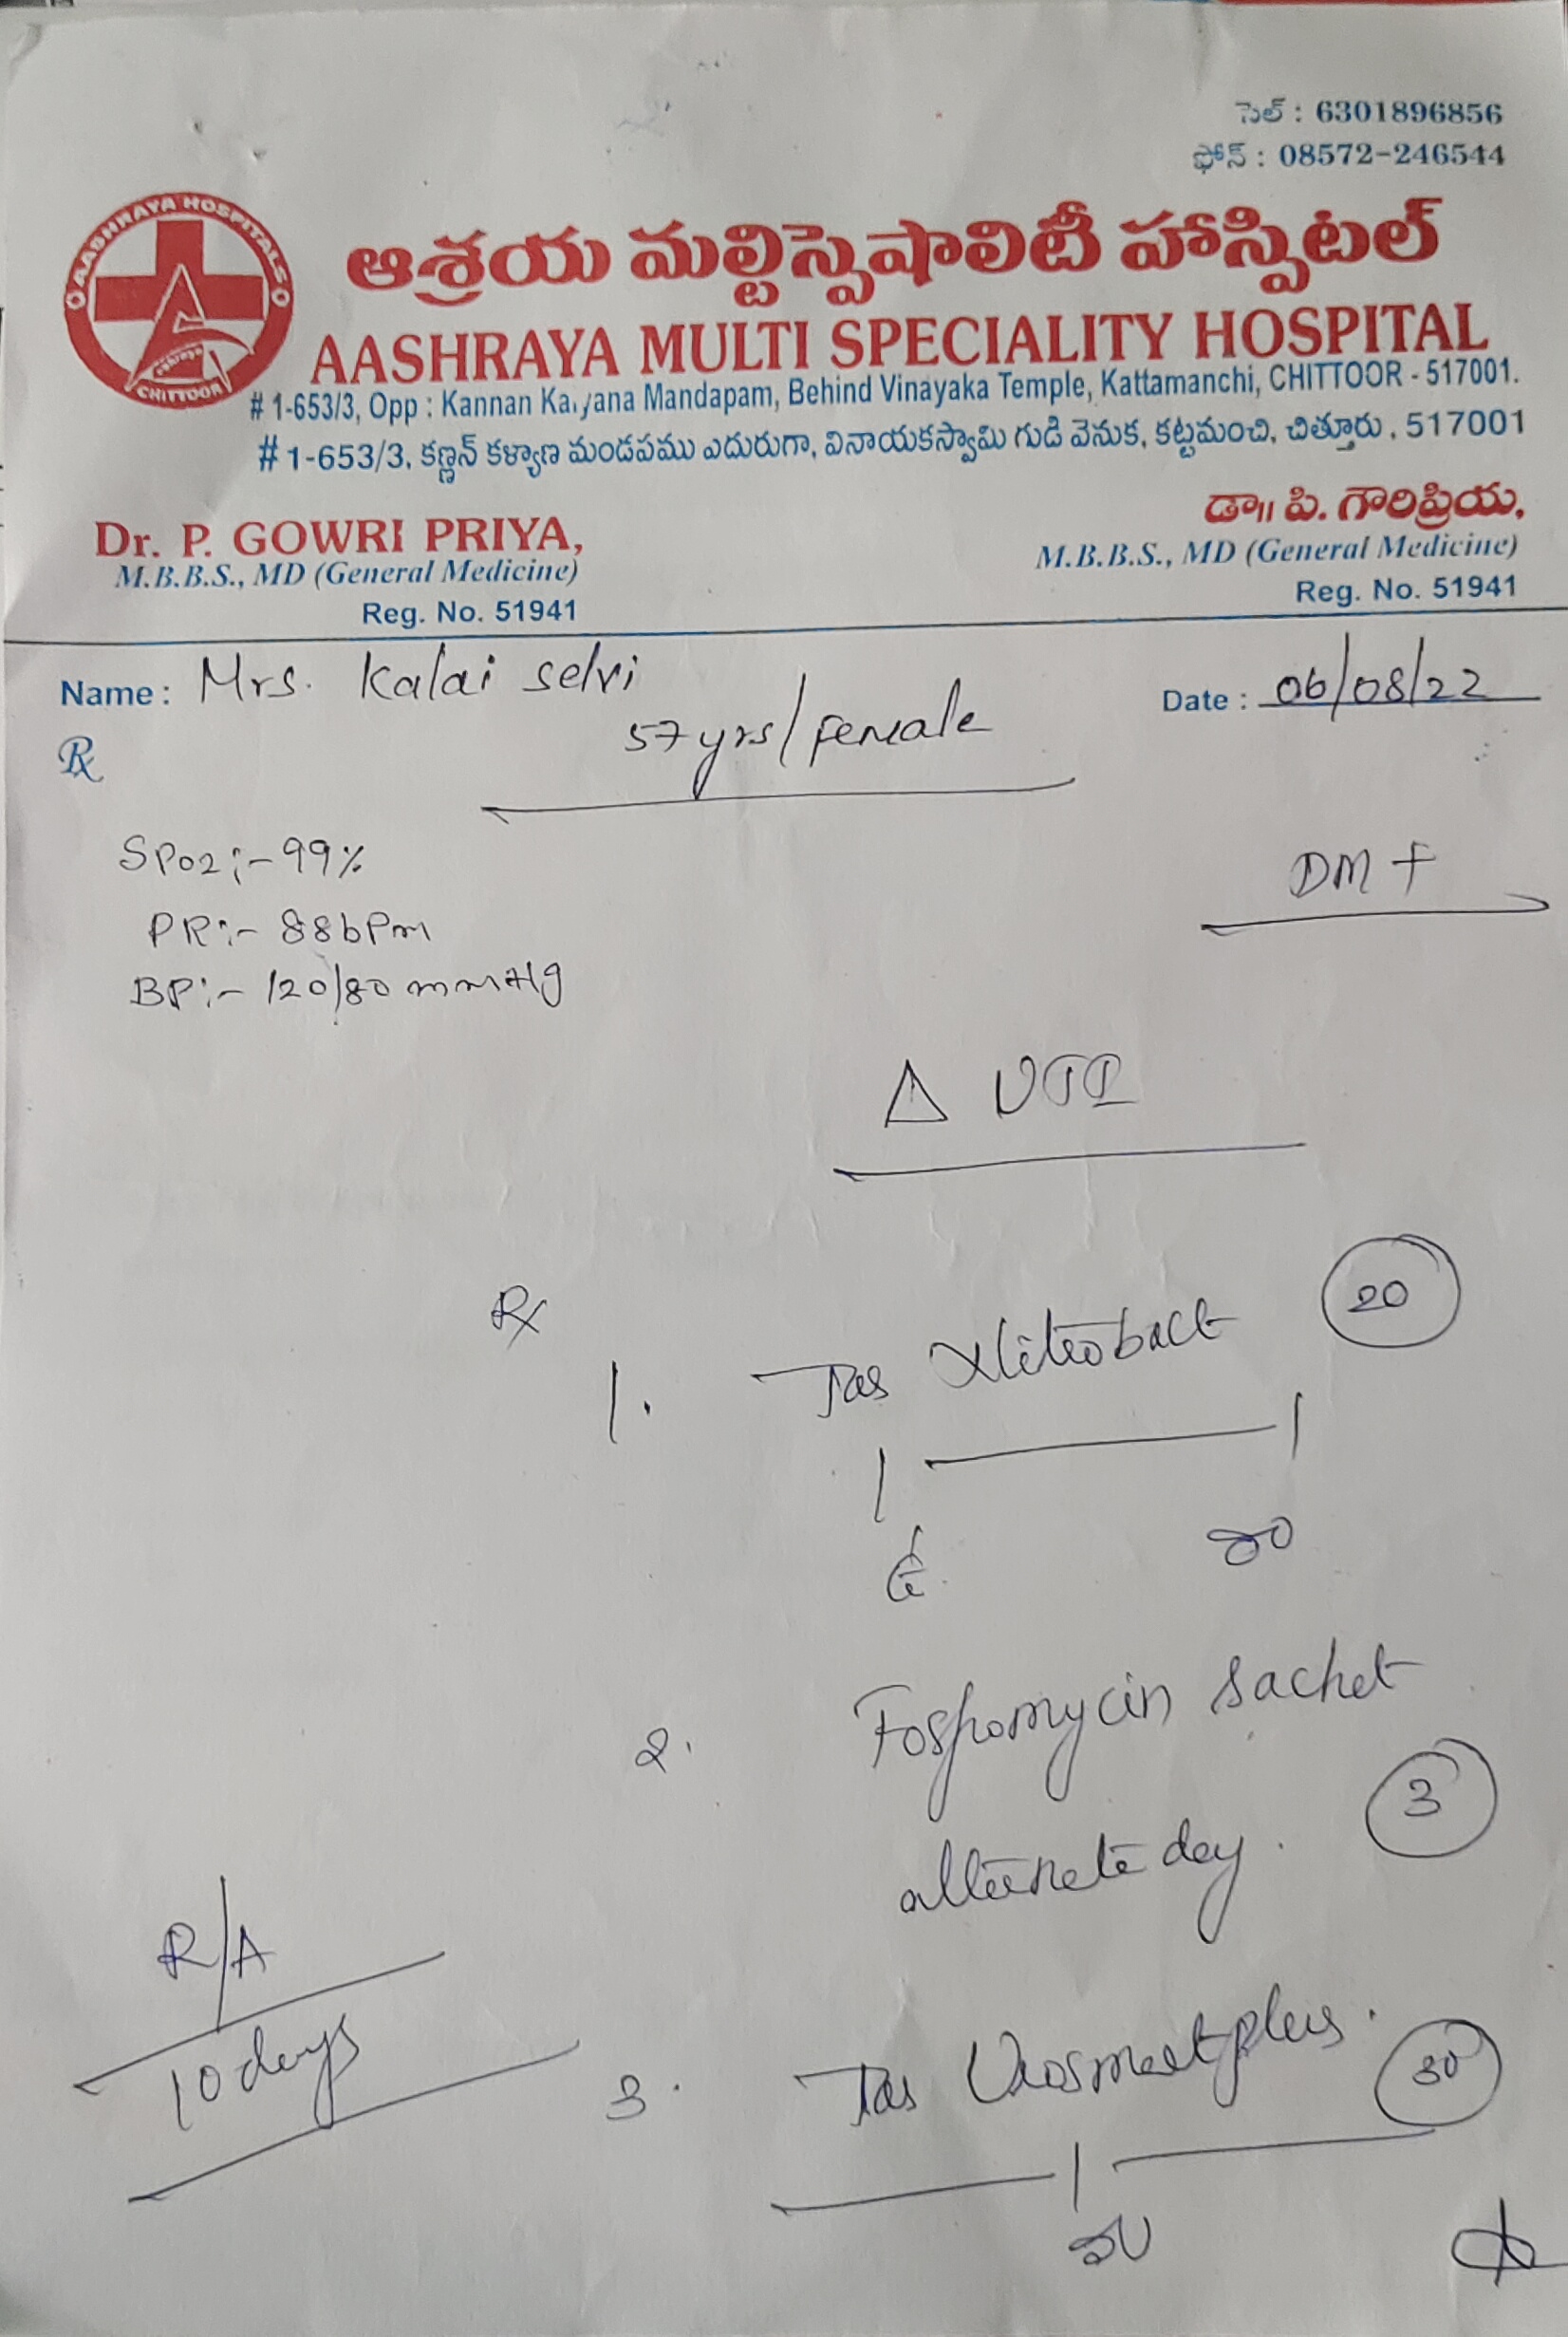 సెల్ : 6301896856
ఫోన్ : 08572-246544
AASHRAYA HOSPITALS
CHITTOOR
ఆశ్రయ మల్టిస్పెషాలిటీ హాస్పిటల్
AASHRAYA MULTI SPECIALITY HOSPITAL
# 1-653/3, Opp : Kannan Kalyana Mandapam, Behind Vinayaka Temple, Kattamanchi, CHITTOOR - 517001.
# 1-653/3, కణ్ణన్ కళ్యాణ మండపము ఎదురుగా, వినాయకస్వామి గుడి వెనుక, కట్టమంచి, చిత్తూరు, 517001
Dr. P. GOWRI PRIYA,
M.B.B.S., MD (General Medicine)
Reg. No. 51941
డా॥ పి. గౌరిప్రియ,
M.B.B.S., MD (General Medicine)
Reg. No. 51941
Name : Mrs. Kalai selvi
Date : 06/08/22
57 yrs/female
℞
SPO2 :- 99%
DM +
PR :- 88bPm
BP :- 120/80 mmHg
Δ UTI
Rx
1. Tab 20
1 — 1
ఉ రా
2. Fospomycin sachet
alternate day. 3
R/A
10 days
3. Tab plus. 30
— 1 —